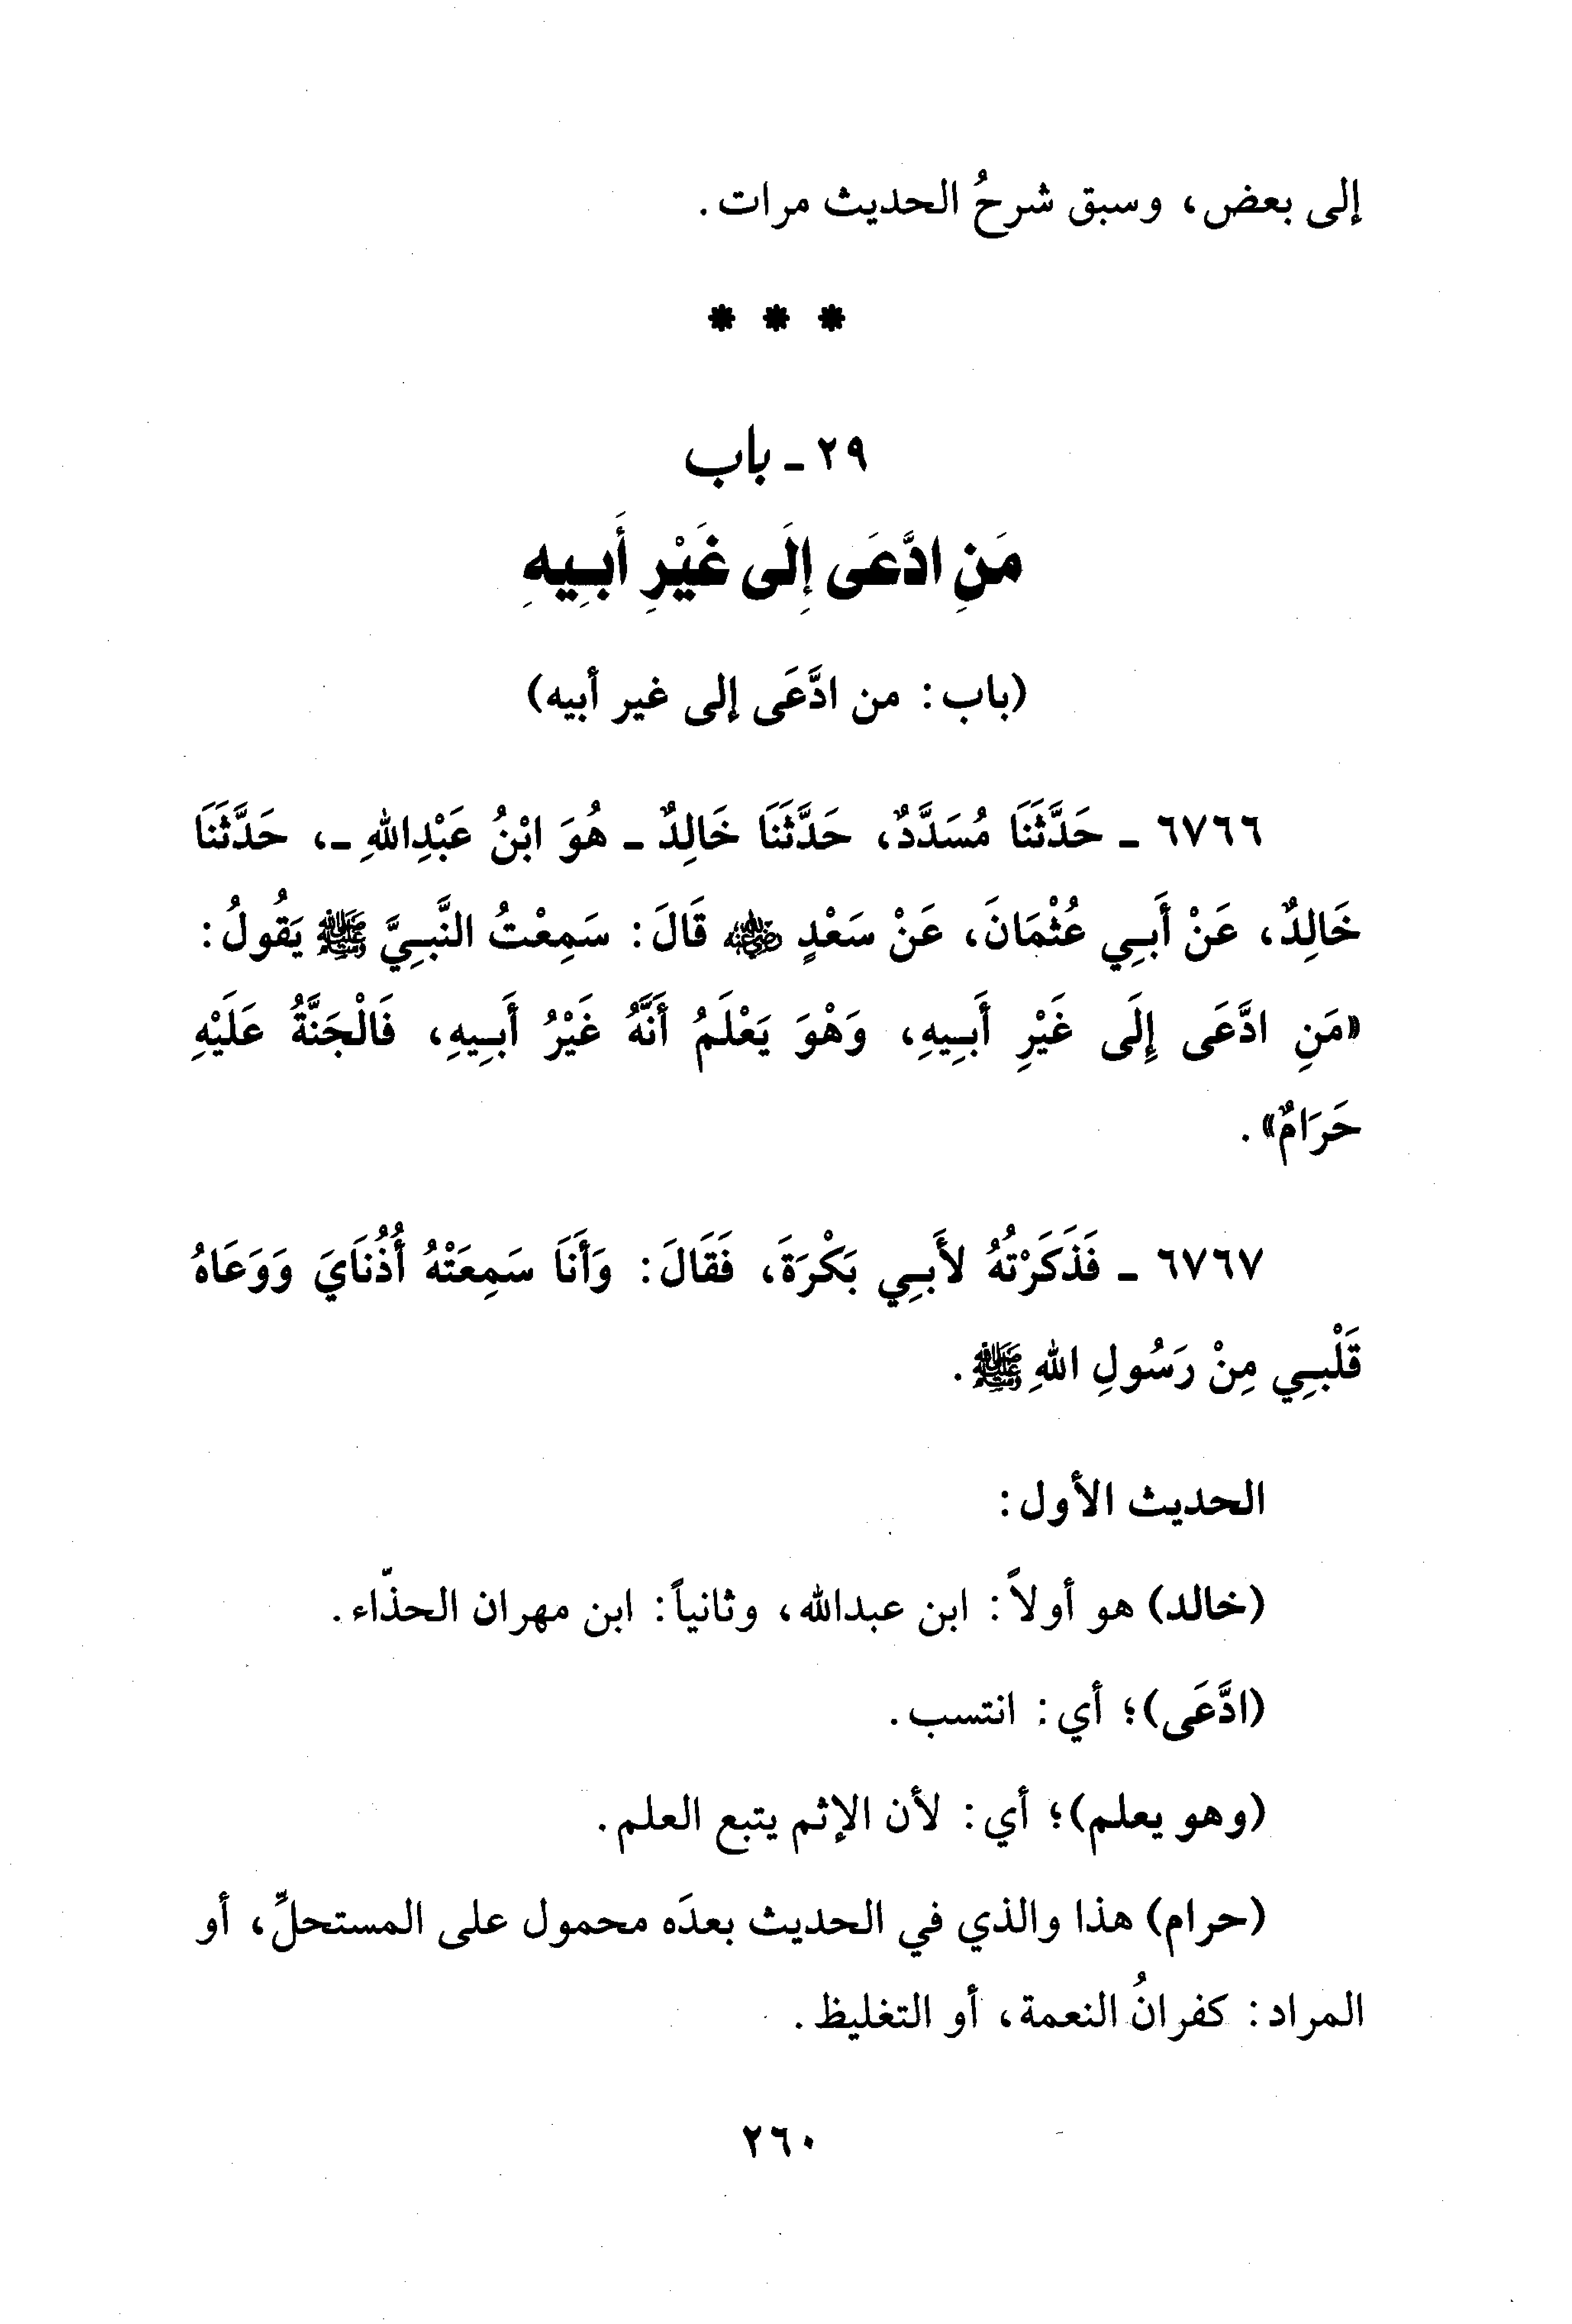 إلى بعض، وسبق شرحُ الحديث مرات.
* * *
٢٩ - باب
مَنِ ادَّعَى إِلَى غَيْرِ أَبِيهِ
(باب: من ادَّعَى إلى غير أبيه)
٦٧٦٦ - حَدَّثَنَا مُسَدَّدٌ، حَدَّثَنَا خَالِدٌ - هُوَ ابْنُ عَبْدِاللهِ -، حَدَّثَنَا
خَالِدٌ، عَنْ أَبِي عُثْمَانَ، عَنْ سَعْدٍ رضي الله عنه قَالَ: سَمِعْتُ النَّبِيَّ ﷺ يَقُولُ:
«مَنِ ادَّعَى إِلَى غَيْرِ أَبِيهِ، وَهْوَ يَعْلَمُ أَنَّهُ غَيْرُ أَبِيهِ، فَالْجَنَّةُ عَلَيْهِ
حَرَامٌ».
٦٧٦٧ - فَذَكَرْتُهُ لأَبِي بَكْرَةَ، فَقَالَ: وَأَنَا سَمِعَتْهُ أُذُنَايَ وَوَعَاهُ
قَلْبِي مِنْ رَسُولِ اللهِ ﷺ.
الحديث الأول:
(خالد) هو أولاً: ابن عبدالله، وثانياً: ابن مهران الحذّاء.
(ادَّعَى)؛ أي: انتسب.
(وهو يعلم)؛ أي: لأن الإثم يتبع العلم.
(حرام) هذا والذي في الحديث بعدَه محمول على المستحلِّ، أو
المراد: كفرانُ النعمة، أو التغليظ.
٢٦٠